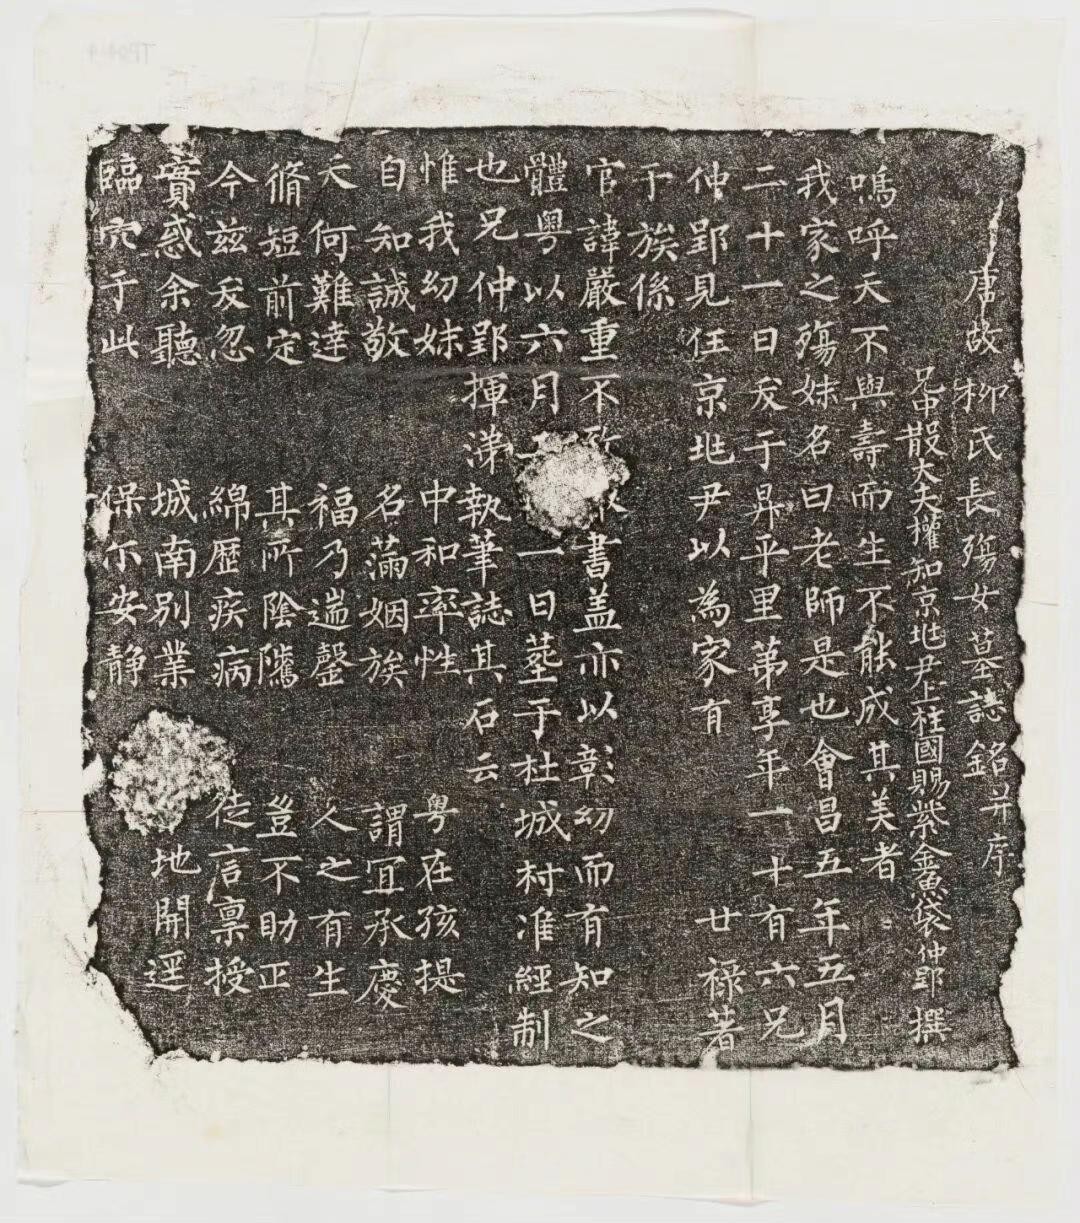 唐故柳氏長殤女墓誌銘并序
兄中散大夫權知京兆尹上柱國賜紫金魚袋仲郢撰
嗚呼天不與壽而生不能成其美者
我家之殤妹名曰老師是也會昌五年五月
二十一日夭于昇平里第享年一十有六兄
仲郢見任京兆尹以為家有 廿祿著
于族係
官諱嚴重不書盖亦以彰幼而有知之
體粤以六月一日塟于杜城村准經制
也兄仲郢揮涕執筆誌其石云
惟我幼妹 中和率性 粤在孩提
自知誠敬 名滿姻族 謂宜承慶
天何難達 福乃遄罄 人之有生
脩短前定 其所陰隲 豈不助正
今茲夭忽 綿歷疾病 徒言稟授
實惑余聽 城南別業 地開逕
臨穴于此 保尒安静